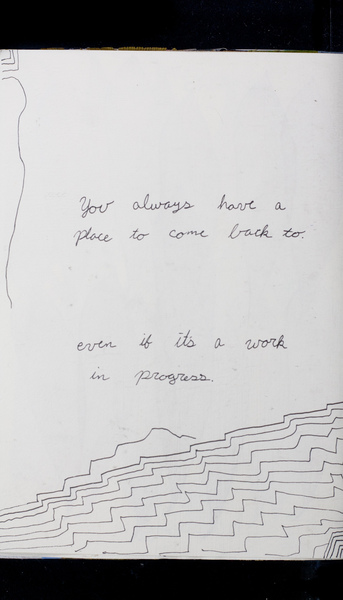 You always have a
place to come back to.
even if it's a work
in progress.